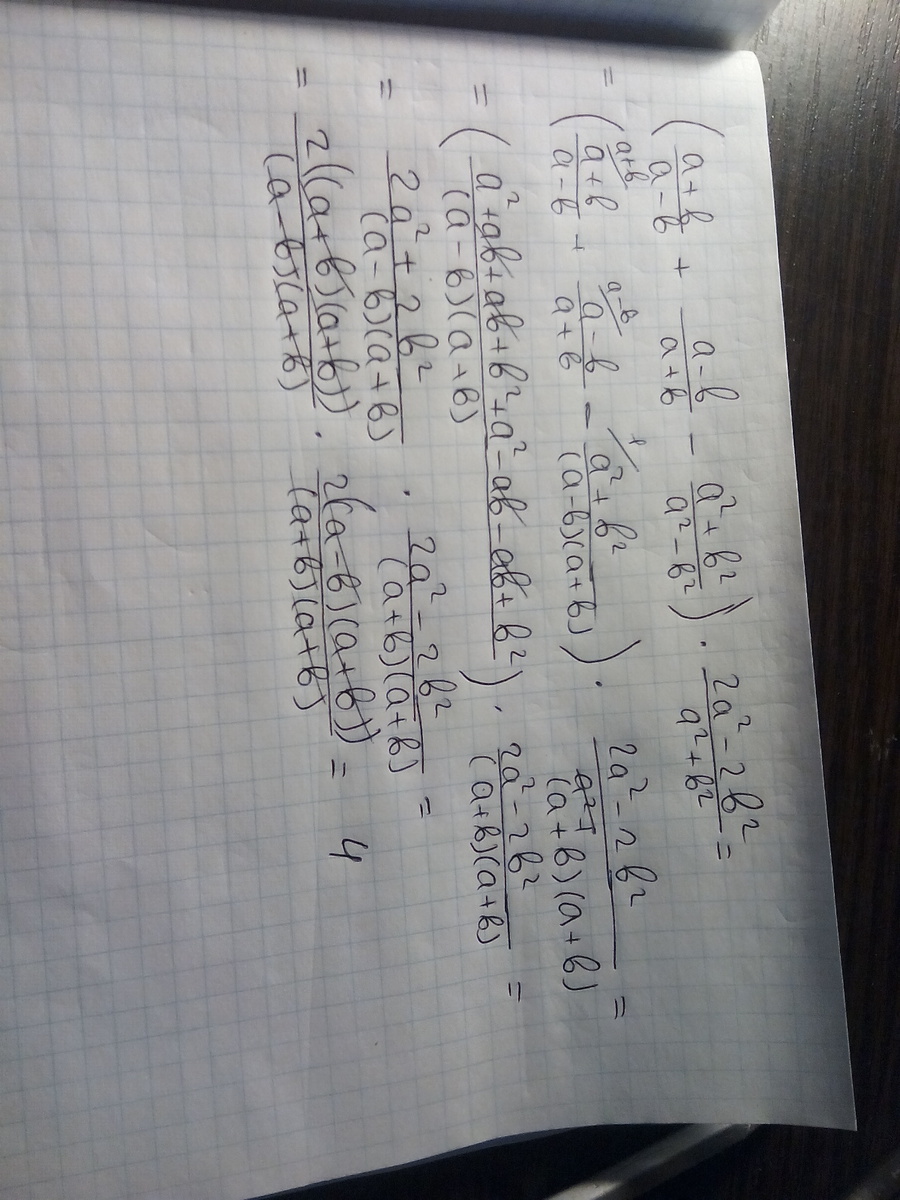 (a+b/a-b + a-b/a+b - a²+b²/a²-b²) · 2a²-2b²/a²+b² =
= (a+b/a-b ^(a+b) + a-b/a+b ^(a-b) - a²+b²/(a-b)(a+b)) · 2a²-2b²/(a+b)(a+b) =
= (a²+ab+ab+b²+a²-ab-ab+b²/(a-b)(a+b)) · 2a²-2b²/(a+b)(a+b) =
= 2a²+2b²/(a-b)(a+b) · 2a²-2b²/(a+b)(a+b) =
= 2((a+b)(a+b))/(a-b)(a+b) · 2(a-b)(a+b))/(a+b)(a+b) = 4